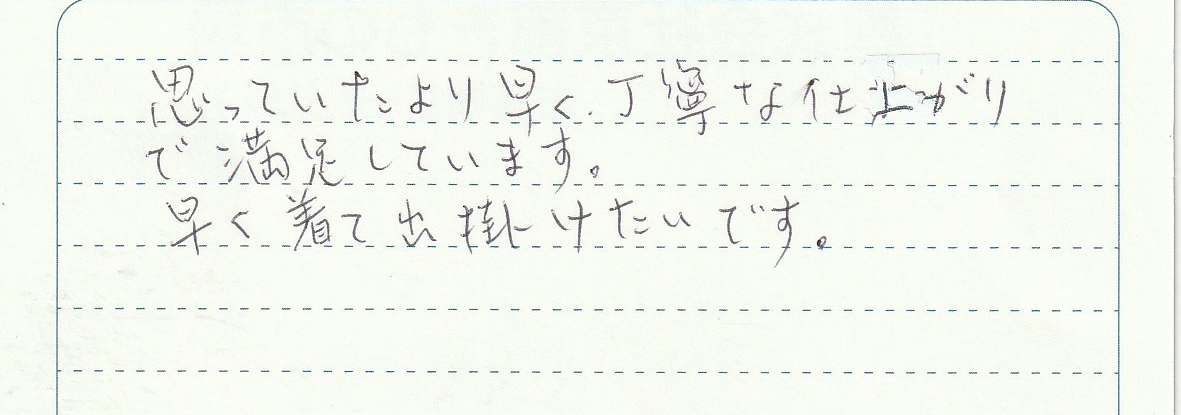 思っていたより早く、丁寧な仕上がり
で満足しています。
早く着て出掛けたいです。